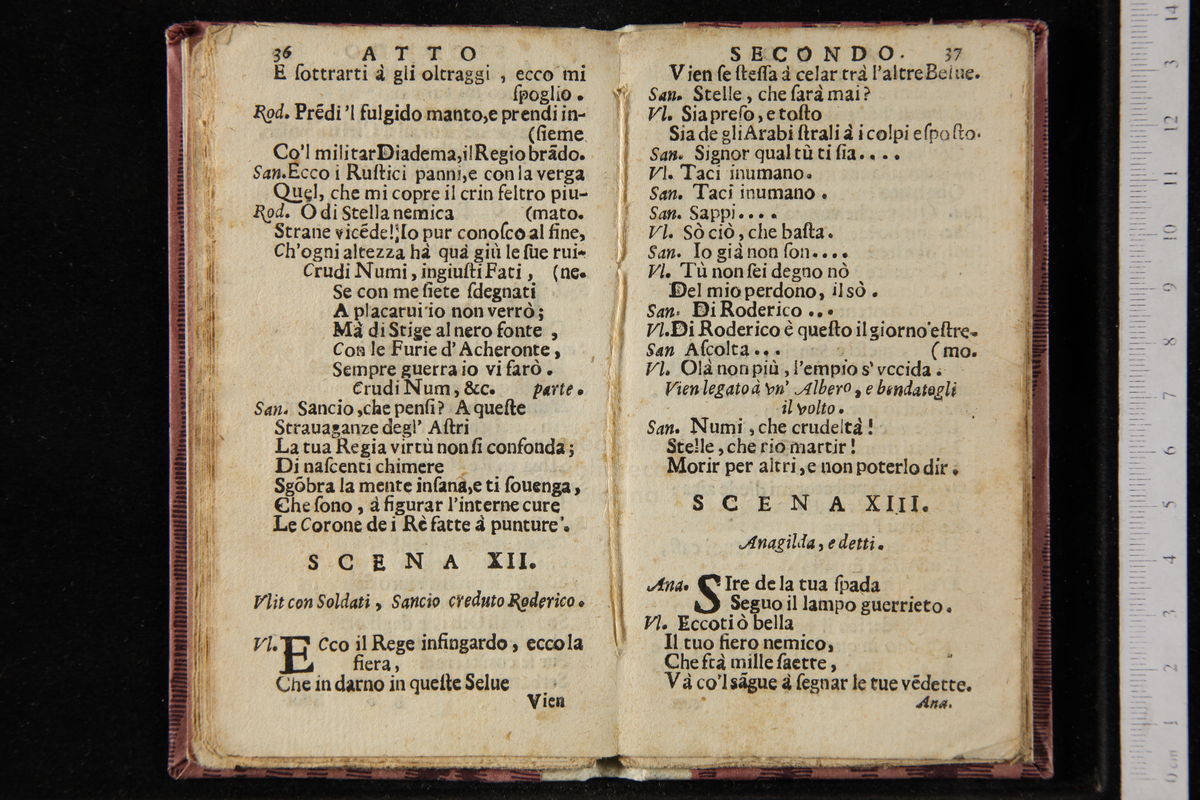 36 ATTO
E ſottrarti à gli oltraggi , ecco mi
ſpoglio .
Rod. Prẽdi 'l fulgido manto,e prendi in-
(ſieme
Co'l militar Diadema,il Regio brãdo.
San.Ecco i Ruſtici panni,e con la verga
Quel, che mi copre il crin feltro piu-
Rod. O di Stella nemica (mato.
Strane vicẽde! Io pur conoſco al fine,
Ch'ogni altezza hà quà giù le ſue rui-
Crudi Numi, ingiuſti Fati , (ne.
Se con me ſiete ſdegnati
A placarui io non verrò ;
Mà di Stige al nero fonte ,
Con le Furie d'Acheronte ,
Sempre guerra io vi farò .
Crudi Num, &c. parte.
San. Sancio ,che penſi? A queſte
Strauaganze degl' Aſtri
La tua Regia virtù non ſi confonda ;
Di naſcenti chimere
Sgõbra la mente inſana,e ti ſouenga ,
Che ſono , à figurar l'interne cure
Le Corone de i Rè fatte à punture .
SCENA XII.
Vlit con Soldati , Sancio creduto Roderico .
Vl. ECco il Rege infingardo , ecco la
fiera ,
Che in darno in queſte Selue
Vien
SECONDO. 37
Vien ſe ſteſſa à celar trà l'altre Belue.
San. Stelle , che ſarà mai ?
Vl. Sia preſo , e toſto
Sia de gli Arabi ſtrali à i colpi eſpoſto.
San. Signor qual tù ti ſia . . . .
Vl. Taci inumano .
San. Taci inumano .
San. Sappi . . . .
Vl. Sò ciò , che baſta .
San. Io già non ſon . . . .
Vl. Tù non ſei degno nò
Del mio perdono , il sò .
San. Di Roderico . . .
Vl.Di Roderico è queſto il giorno eſtre-
San Aſcolta . . . (mo.
Vl. Olà non più , l'empio s'vccida .
Vien legato à vn' Albero , e bendatogli
il volto .
San. Numi , che crudeltà !
Stelle , che rio martir !
Morir per altri , e non poterlo dir .
SCENA XIII.
Anagilda , e detti .
Ana. SIre de la tua ſpada
Seguo il lampo guerrieto .
Vl. Eccoti ò bella
Il tuo fiero nemico ,
Che frà mille ſaette ,
Và co'l sãgue à ſegnar le tue vẽdette.
Ana.
0 cm 1 2 3 4 5 6 7 8 9 10 11 12 3 14